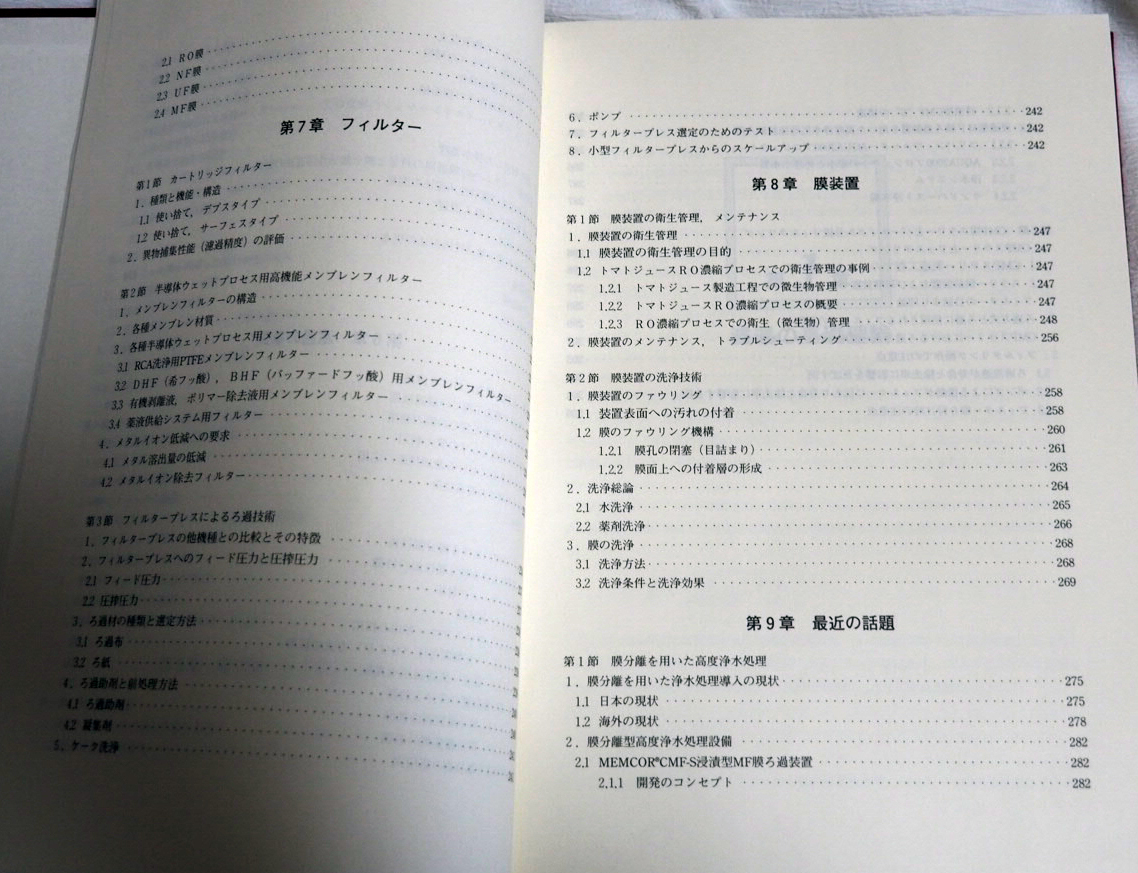 2.1 RO膜
2.2 NF膜
2.3 UF膜
2.4 MF膜
第7章 フィルター
第1節 カートリッジフィルター
1．種類と機能・構造
1.1 使い捨て，デプスタイプ
1.2 使い捨て，サーフェスタイプ
2．異物捕集性能（濾過精度）の評価
第2節 半導体ウェットプロセス用高機能メンブレンフィルター
1．メンブレンフィルターの構造
2．各種メンブレン材質
3．各種半導体ウェットプロセス用メンブレンフィルター
3.1 RCA洗浄用PTFEメンブレンフィルター
3.2 DHF（希フッ酸），BHF（バッファードフッ酸）用メンブレンフィルター
3.3 有機剥離液，ポリマー除去液用メンブレンフィルター
3.4 薬液供給システム用フィルター
4．メタルイオン低減への要求
4.1 メタル溶出量の低減
4.2 メタルイオン除去フィルター
第3節 フィルタープレスによるろ過技術
1．フィルタープレスの他機種との比較とその特徴
2．フィルタープレスへのフィード圧力と圧搾圧力
2.1 フィード圧力
2.2 圧搾圧力
3．ろ過材の種類と選定方法
3.1 ろ過布
3.2 ろ紙
4．ろ過助剤と前処理方法
4.1 ろ過助剤
4.2 凝集剤
5．ケーク洗浄
6．ポンプ 242
7．フィルタープレス選定のためのテスト 242
8．小型フィルタープレスからのスケールアップ 242
第8章 膜装置
第1節 膜装置の衛生管理，メンテナンス
1．膜装置の衛生管理 247
1.1 膜装置の衛生管理の目的 247
1.2 トマトジュースRO濃縮プロセスでの衛生管理の事例 247
1.2.1 トマトジュース製造工程での微生物管理 247
1.2.2 トマトジュースRO濃縮プロセスの概要 247
1.2.3 RO濃縮プロセスでの衛生（微生物）管理 248
2．膜装置のメンテナンス，トラブルシューティング 256
第2節 膜装置の洗浄技術
1．膜装置のファウリング 258
1.1 装置表面への汚れの付着 258
1.2 膜のファウリング機構 260
1.2.1 膜孔の閉塞（目詰まり） 261
1.2.2 膜面上への付着層の形成 263
2．洗浄総論 264
2.1 水洗浄 265
2.2 薬剤洗浄 266
3．膜の洗浄 268
3.1 洗浄方法 268
3.2 洗浄条件と洗浄効果 269
第9章 最近の話題
第1節 膜分離を用いた高度浄水処理
1．膜分離を用いた浄水処理導入の現状 275
1.1 日本の現状 275
1.2 海外の現状 278
2．膜分離型高度浄水処理設備 282
2.1 MEMCOR®CMF-S浸漬型MF膜ろ過装置 282
2.1.1 開発のコンセプト 282